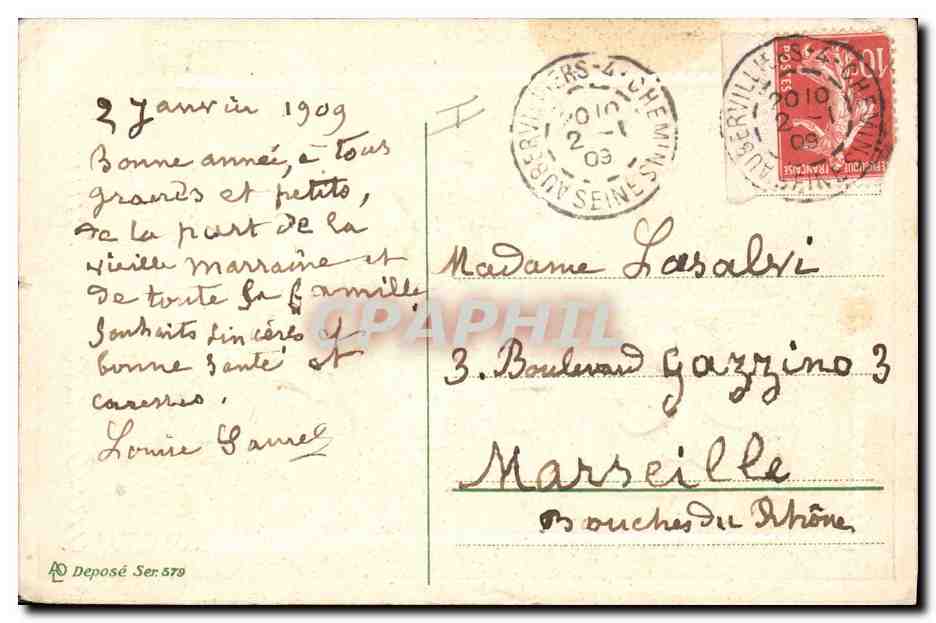 2 Janvier 1909
Bonne année, à tous
grands et petits,
de la part de la
vieille marraine et
de toute sa famille
Souhaits sincères et
bonne santé et
caresses.
Louise
AUBERVILLIERS-4-CHEMINS
20 10
2 -1
09
SEINE
AUBERVILLIERS-4-CHEMINS
20 10
2 -1
09
SEINE
10c
POSTES
REPUBLIQUE FRANÇAISE
Madame Lasalvi
3. Boulevard Gazzino 3
Marseille
Bouches du Rhône
CPAPHIL
Deposé Ser. 579